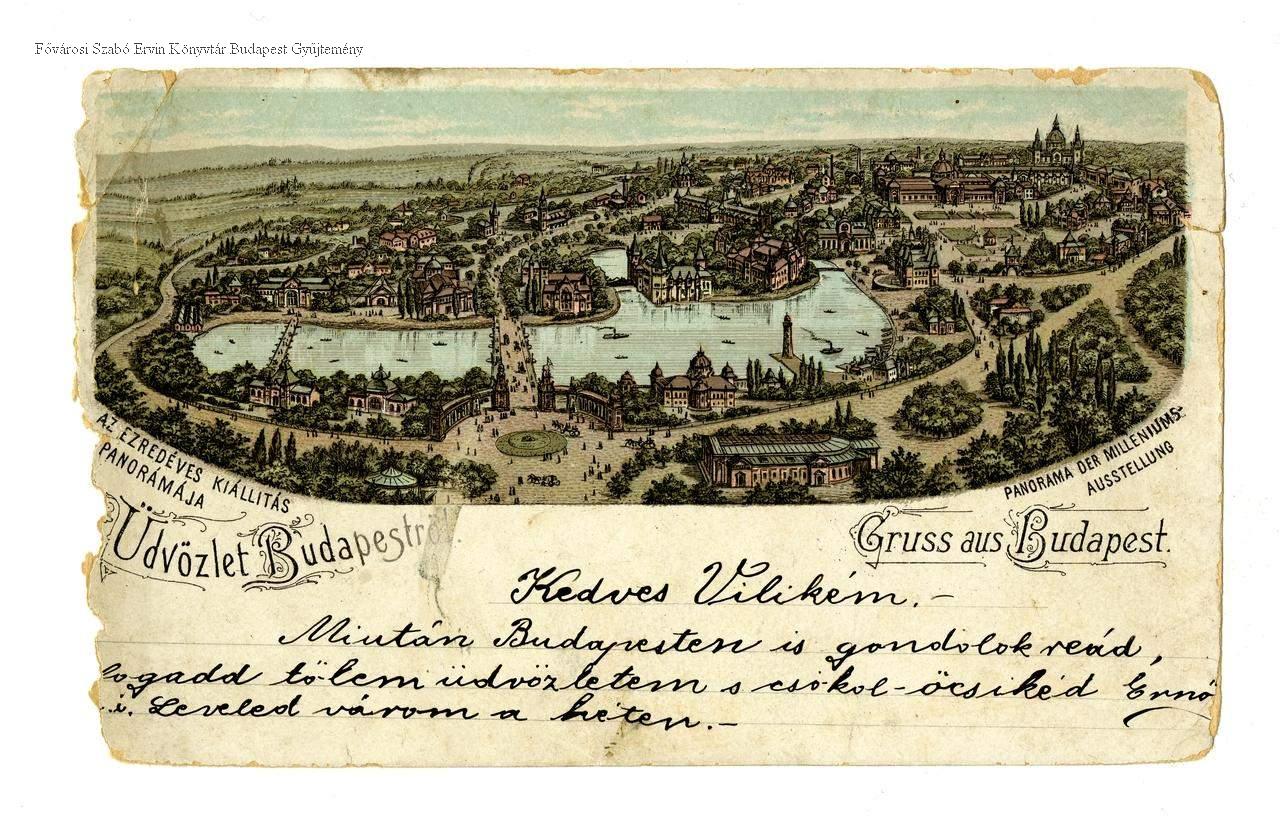 Fővárosi Szabó Ervin Könyvtár Budapest Gyűjtemény
AZ EZREDÉVES KIÁLLITÁS
PANORÁMÁJA
PANORAMA DER MILLENIUMS-
AUSSTELLUNG
Üdvözlet Budapestről.
Gruss aus Budapest.
Kedves Vilikém.-
Miután Budapesten is gondolok reád,
fogadd tőlem üdvözletem s csókol-öcsikéd Ernő
Leveled várom a héten.-